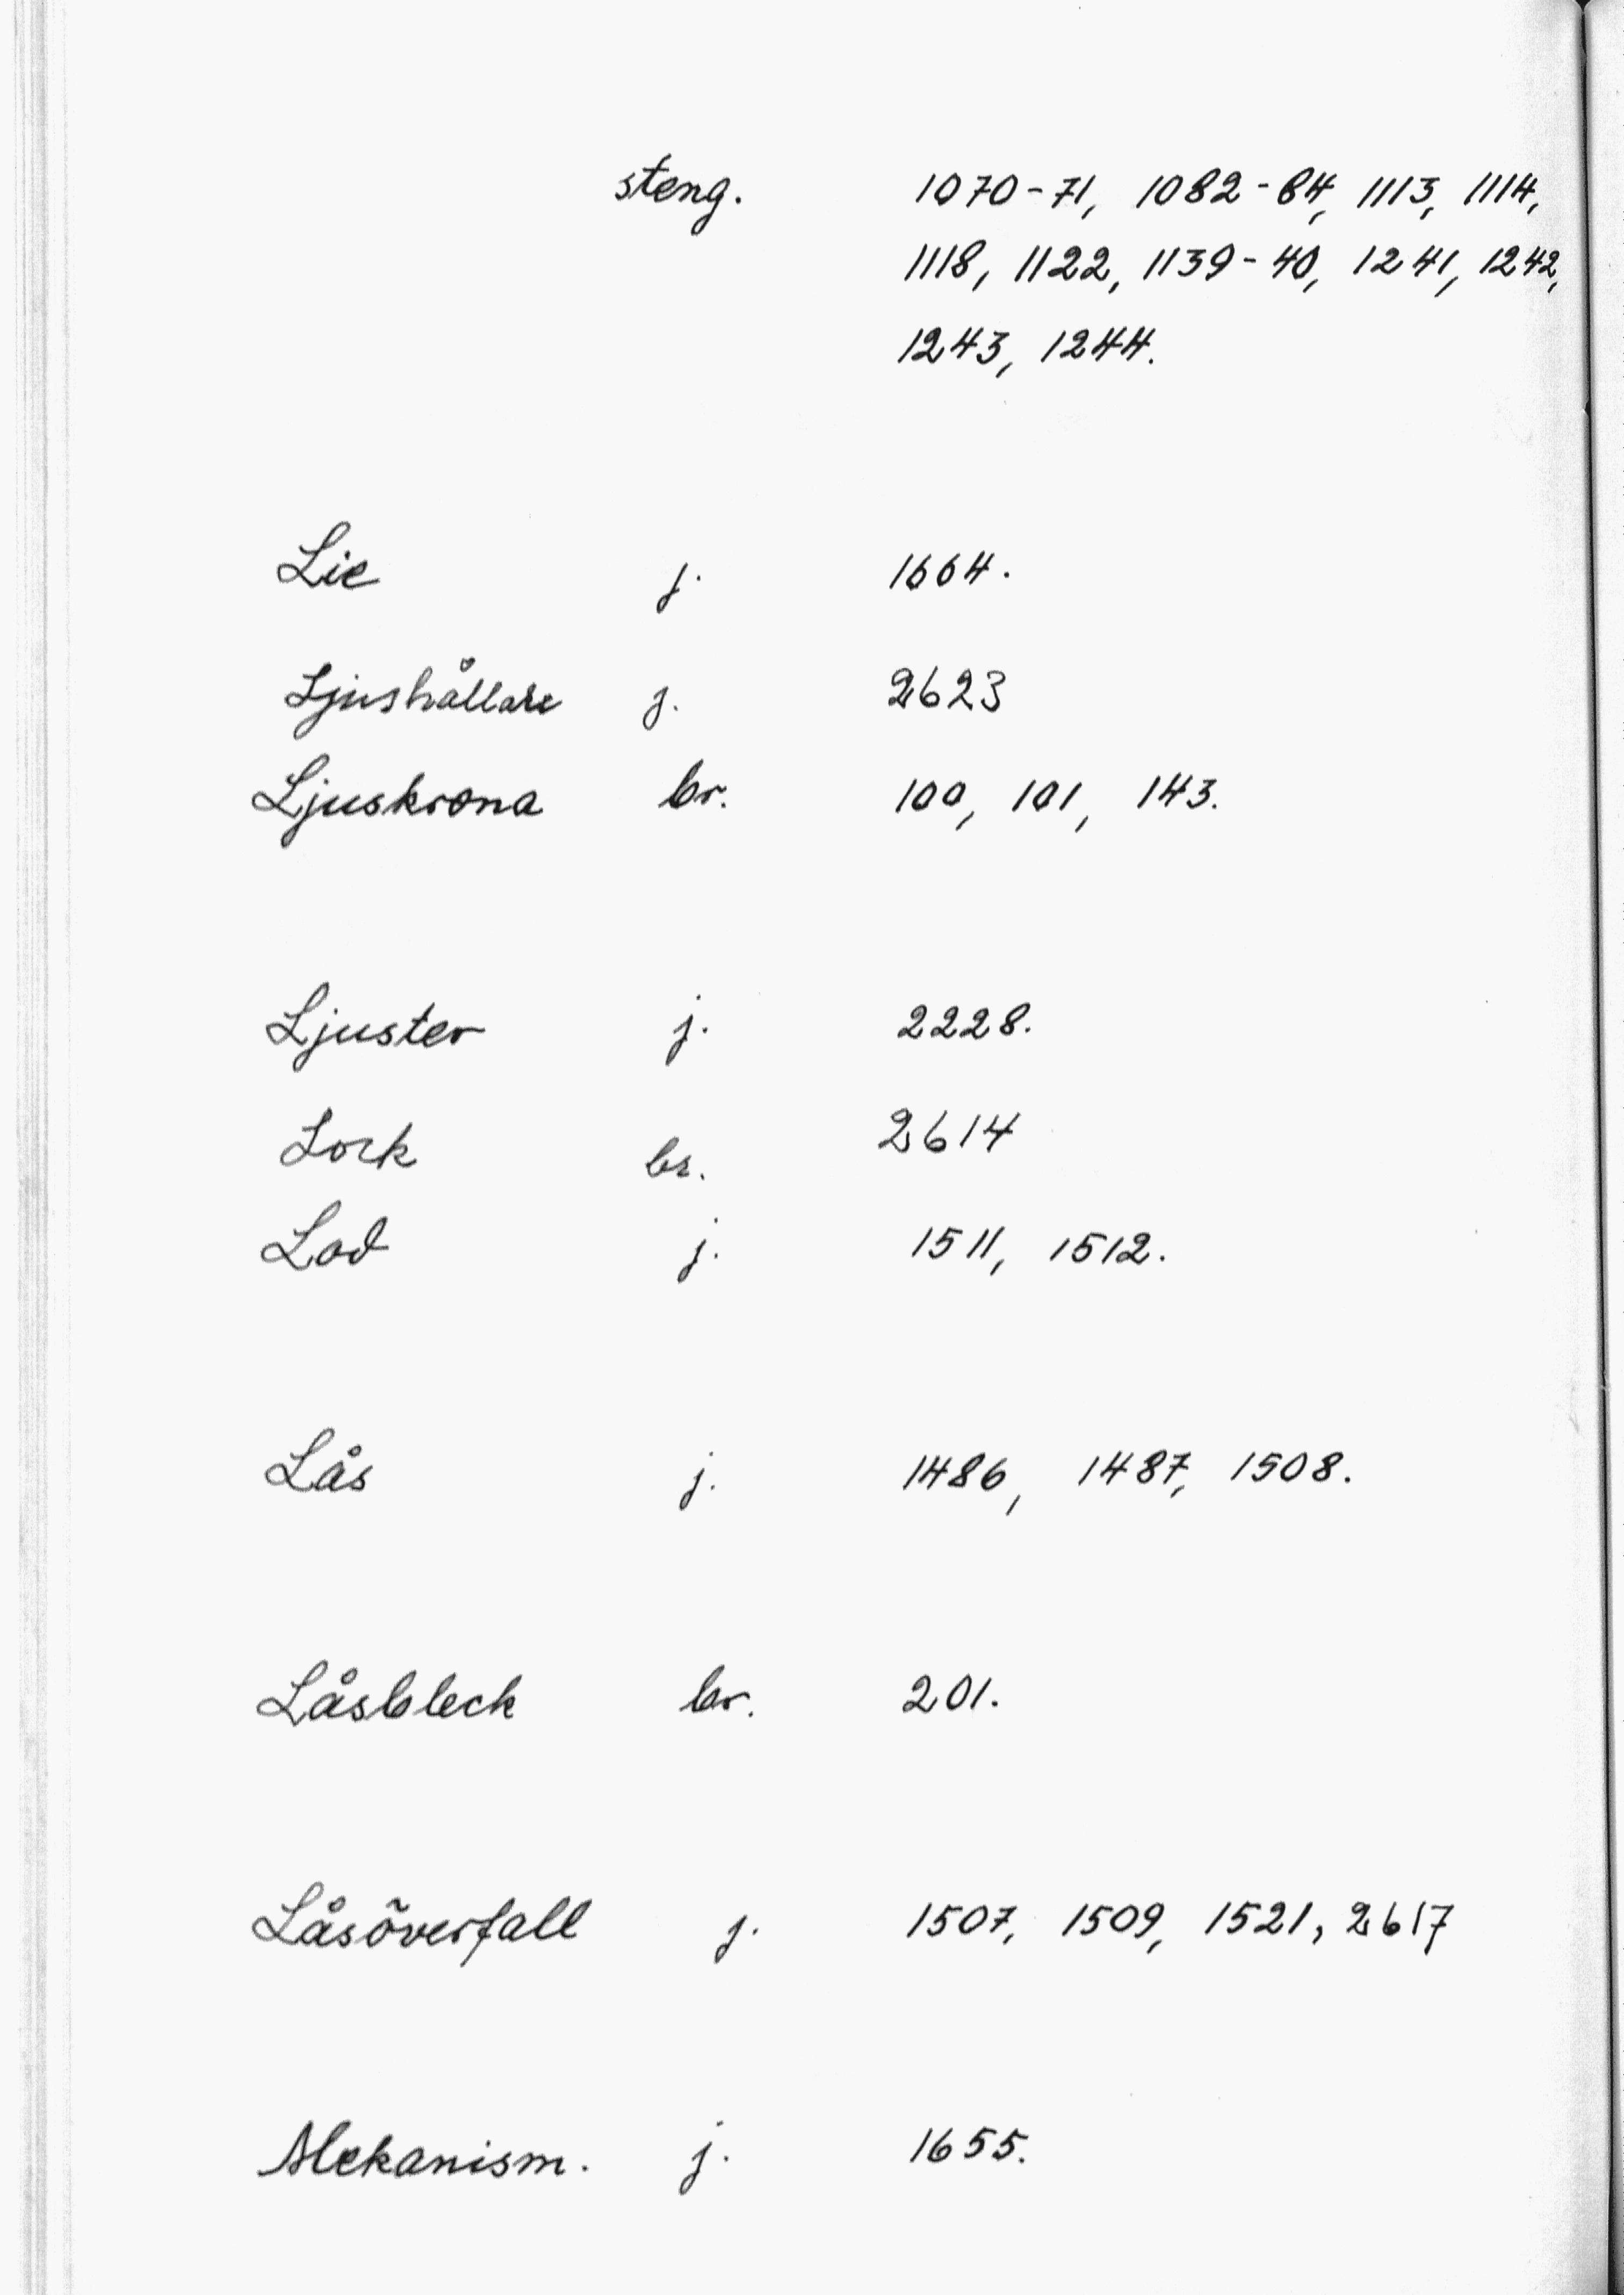 steng. 1070-71, 1082-84, 1113, 1114,
1118, 1122, 1139-40, 1241, 1242,
1243, 1244.
Lie j. 1664.
Ljushållare j. 2623
Ljuskrona br. 100, 101, 143.
Ljuster j. 2228.
Lock br. 2614
Lod j. 1511, 1512.
Lås j. 1486, 1487, 1508.
Låsbleck br. 201.
Låsöverfall j. 1507, 1509, 1521, 2617
Mekanism. j. 1655.